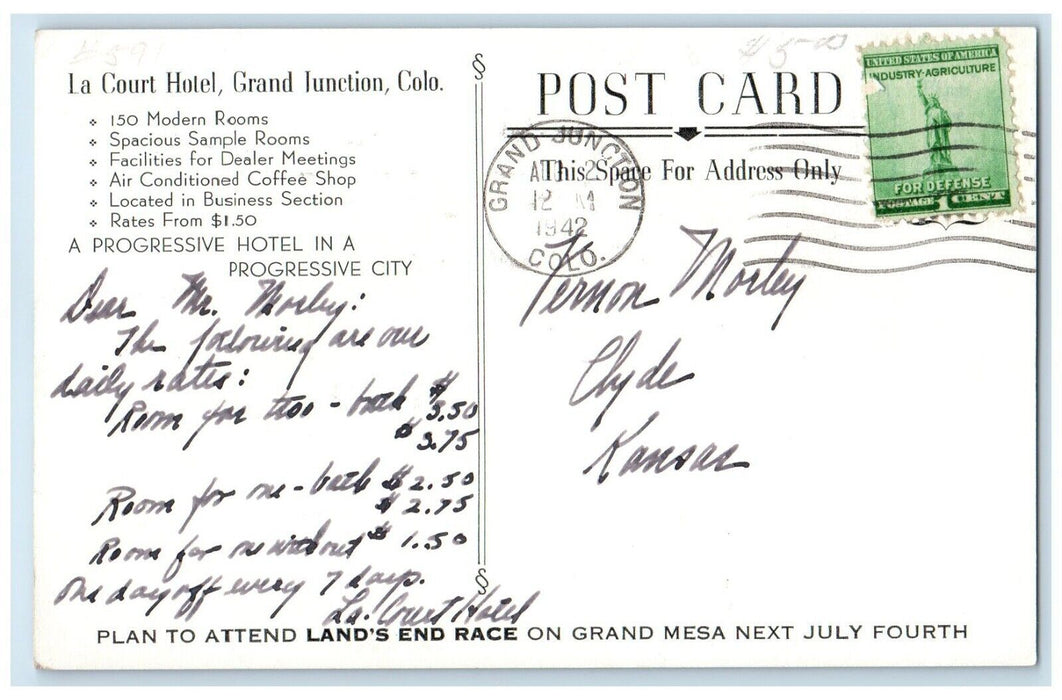 La Court Hotel, Grand Junction, Colo.
❖ 150 Modern Rooms
❖ Spacious Sample Rooms
❖ Facilities for Dealer Meetings
❖ Air Conditioned Coffee Shop
❖ Located in Business Section
❖ Rates From $1.50
A PROGRESSIVE HOTEL IN A
PROGRESSIVE CITY
Dear Mr. Morley:
The following are our
daily rates:
Room for two - bath $3.50
$3.75
Room for one - bath $2.50
$2.75
Room for one without $1.50
One day off every 7 days.
La Court Hotel
POST CARD
This Space For Address Only
GRAND JUNCTION
2
12 M
1942
COLO.
UNITED STATES OF AMERICA
INDUSTRY-AGRICULTURE
FOR DEFENSE
POSTAGE 1 CENT
Vernon Morley
Clyde
Kansas
PLAN TO ATTEND LAND'S END RACE ON GRAND MESA NEXT JULY FOURTH